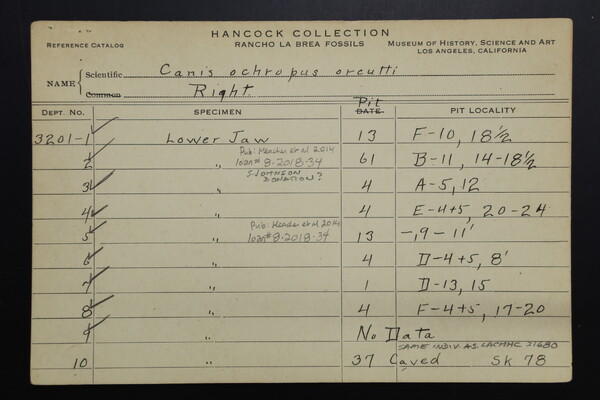 HANCOCK COLLECTION
REFERENCE CATALOG RANCHO LA BREA FOSSILS MUSEUM OF HISTORY, SCIENCE AND ART
LOS ANGELES, CALIFORNIA
NAME { Scientific Canis ochropus orcutti
Common Right
Pit
DEPT. NO. SPECIMEN DATE. PIT LOCALITY
3201-1 Lower Jaw 13 F-10, 18½
Pub: Meachen et al 2014
2 " loan# 8-2018-34 61 B-11, 14-18½
S. JOHNSON DONATION?
3 " 4 A-5, 12
4 " 4 E-4+5, 20-24
Pub: Meachen et al 2014
5 " loan# 8-2018-34 13 -, 9-11'
6 " 4 D-4+5, 8'
7 " 1 D-13, 15
8 " 4 F-4+5, 17-20
9 " No Data
SAME INDIV. AS LACMHC 31680
10 " 37 Caved Sk 78